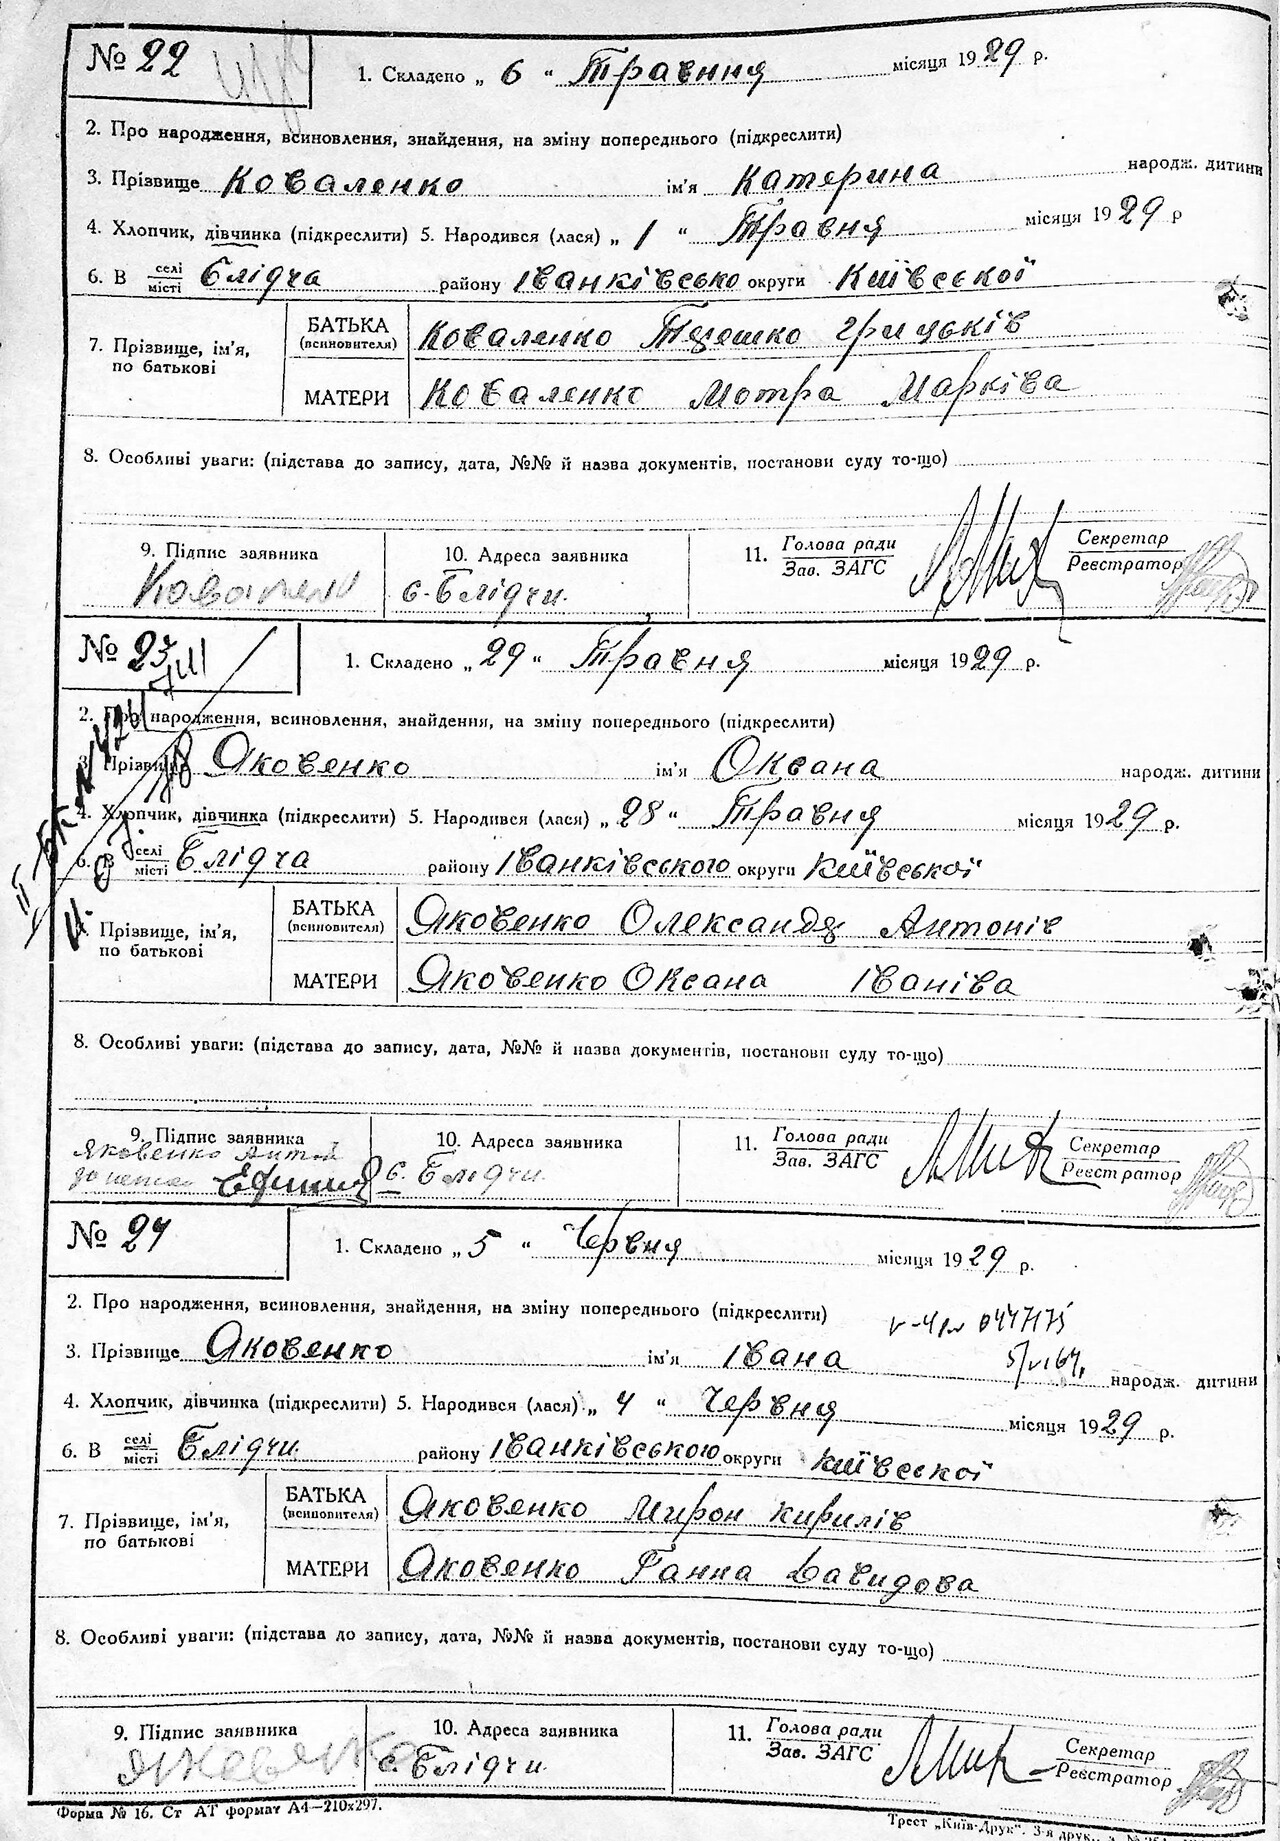 № 22
1. Складено „ 6 “ Траєння місяця 1929 р.
2. Про народження, всиновлення, знайдення, на зміну попереднього (підкреслити)
3. Прізвище Коваленко ім'я Катерина народж. дитини
4. Хлопчик, дівчинка (підкреслити) 5. Народився (лася) „ 1 “ Травня місяця 1929 р
6. В селі/місті Блідча району Іванківсько округи Київської
7. Прізвище, ім'я, по батькові
БАТЬКА (всиновителя) Коваленко Грицьків
МАТЕРИ Коваленко Мотра Марківа
8. Особливі уваги: (підстава до запису, дата, №№ й назва документів, постанови суду то-що)
9. Підпис заявника 10. Адреса заявника 11. Голова ради/Зав. ЗАГС Секретар/Реєстратор
с. Блідчи.
№ 23
1. Складено „ 29 “ Травня місяця 1929 р.
2. Про народження, всиновлення, знайдення, на зміну попереднього (підкреслити)
3. Прізвище Яковенко ім'я Оксана народж. дитини
4. Хлопчик, дівчинка (підкреслити) 5. Народився (лася) „ 28 “ Травня місяця 1929 р.
6. В селі/місті Блідча району Іванківського округи Київської
7. Прізвище, ім'я, по батькові
БАТЬКА (всиновителя) Яковенко Олександр Антонів
МАТЕРИ Яковенко Оксана Іваніва
8. Особливі уваги: (підстава до запису, дата, №№ й назва документів, постанови суду то-що)
9. Підпис заявника 10. Адреса заявника 11. Голова ради/Зав. ЗАГС Секретар/Реєстратор
Яковенко
с. Блідчи
№ 24
1. Складено „ 5 “ Червня місяця 1929 р.
2. Про народження, всиновлення, знайдення, на зміну попереднього (підкреслити)
3. Прізвище Яковенко ім'я Івана народж. дитини
4. Хлопчик, дівчинка (підкреслити) 5. Народився (лася) „ 4 “ Червня місяця 1929 р.
6. В селі/місті Блідчи району Іванківського округи Київської
7. Прізвище, ім'я, по батькові
БАТЬКА (всиновителя) Яковенко Мирон Кирилів
МАТЕРИ Яковенко Ганна Давидова
8. Особливі уваги: (підстава до запису, дата, №№ й назва документів, постанови суду то-що)
9. Підпис заявника 10. Адреса заявника 11. Голова ради/Зав. ЗАГС Секретар/Реєстратор
с. Блідчи
Форма № 16. Ст АТ формат А4—210х297.
Трест „Київ-Друк“. 3-я друк.